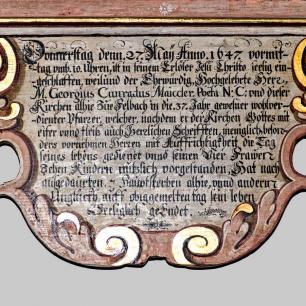 Donnerstag denn. 27. Maÿ Anno. 1647 vormit-
tag vmb. 10. Uhren, ist in seinem Erlöser Jesu Christo seelig ein-
geschlaffen, weilund der Ehrwürdig, Hochgelehrte Herr,
M. Georgius Cunradus Maicler, Poeta N: C: vnd dieser
Kirchen alhie zue Felbach in die. 37. Jahr gewesner wohlver-
dienter Pfarrer, welcher, nachdem er der Kirchen Gottes mit
eifer vnnd fleis auch Herrlichen Schrifften, meniglich, besonders
vornehmen Herren mit Auffrichtigkeit, die Tag
seines lebens gedienet vnnd seinen Vier Frawen
Zehen Kindern nützlich vorgestanden. Hat nach
ausgedauerten. 7. Hauptsterben alhie, vnnd andern
Unglückh, auff obgemelten tag sein leben
Seeliglich geendet.